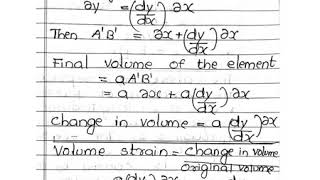 ∂y = (dy/dx) ∂x
Then A'B' = ∂x + (dy/dx) ∂x
Final volume of the element
= a A'B'
= a ∂x + a (dy/dx) ∂x
change in volume = a (dy/dx) ∂x
Volume strain = change in volume / original volume
a(dy/dx) ∂x